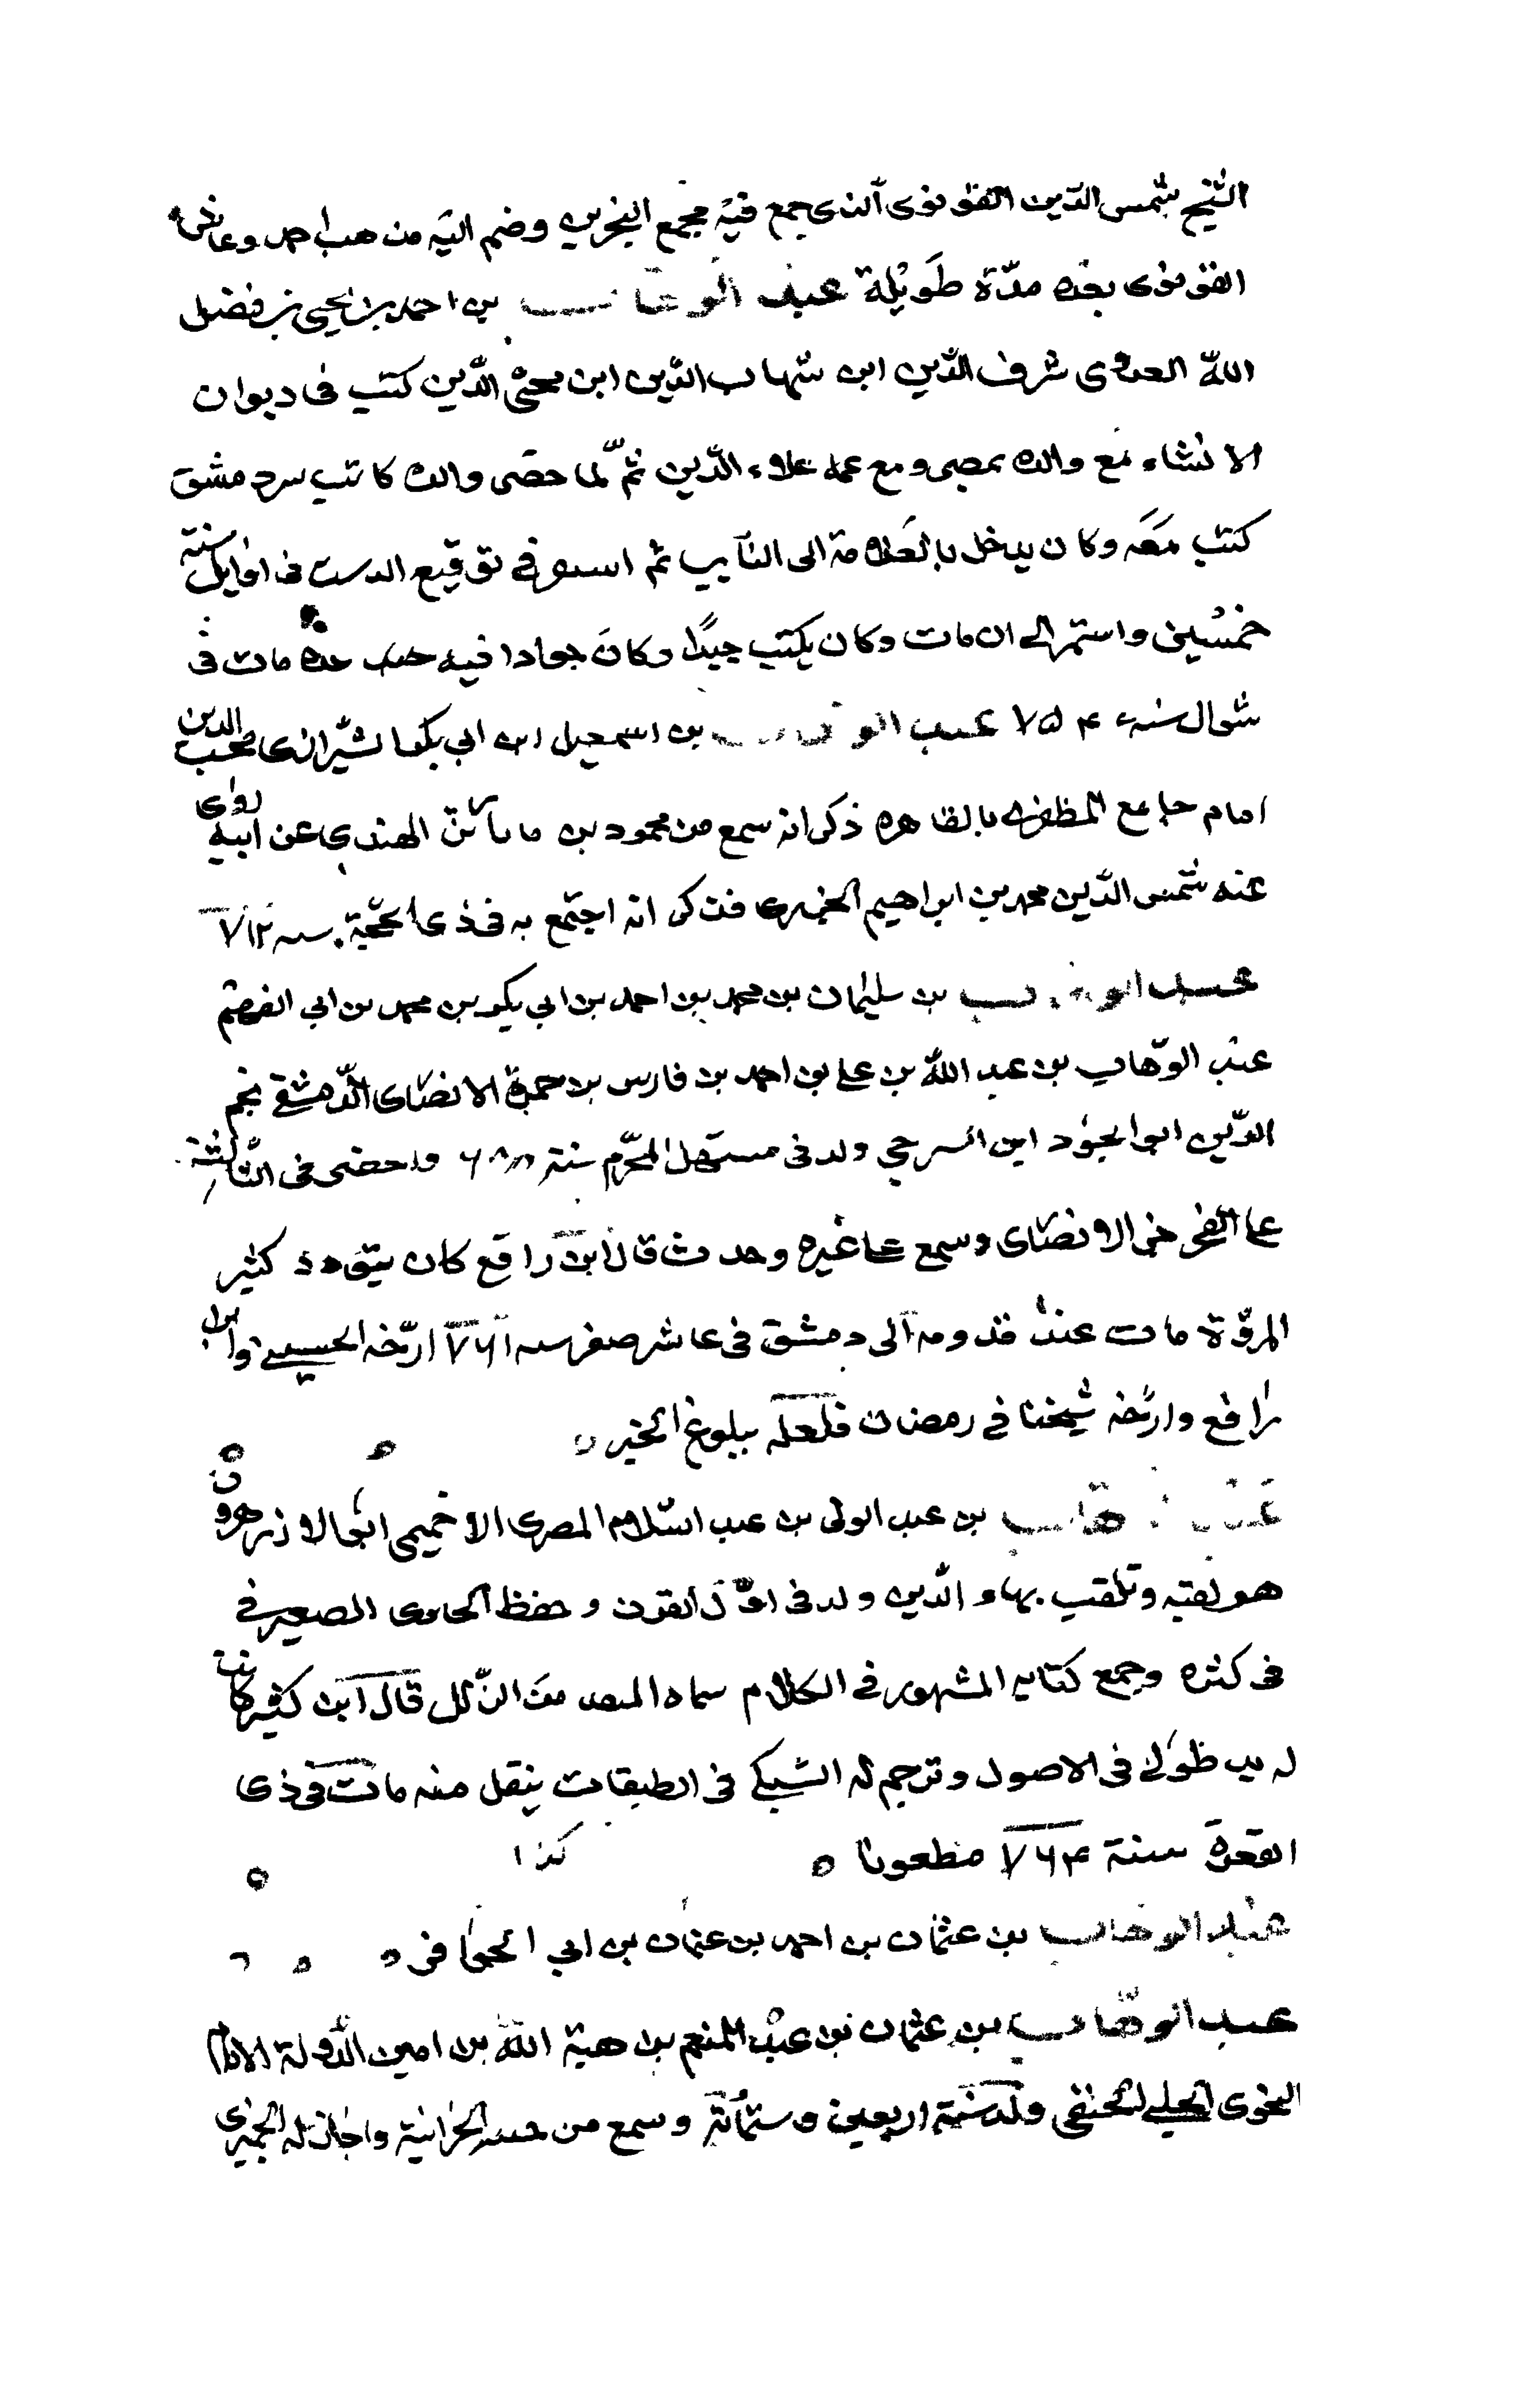 الشيخ شمس الدّين القونوى الذى جمع فيه مجمع البحرين وضم اليه مذهب احمد وعاش
القونوى بعده مدّة طويلة عبد الوهاب بن احمد بن يحيى بن فضل
اللّه العدوى شرف الدّين ابن شهاب الدّين ابن محيى الدّين كتب فى ديوان
الانشاء مع والده بمصر ومع عمه علاء الدّين ثمّ لما حضر والده كاتب سر دمشق
كتب معه وكان يدخل بالعلامة الى النآيب ثم استقر فى توقيع الدست فى اوايل سنة
خمسين واستمر الى ان مات وكان يكتب جيّدًا وكان جوادا فيه حدة مات فى
شوال سنة ۷۵۴ عبد الوهاب بن اسمعيل ابن ابي بكر الشيرازى محب الدين
امام جامع المظفرى بالقاهره ذكر انه سمع من محمود بن الهندي عن ابيه روى
عنه شمس الدّين محمد بن ابراهيم الجزرى فذكر انه اجتمع به فى ذى الحجّة سنه ۷۱۲
عبد الوهاب بن سليمان بن محمد بن احمد بن ابي بكر بن محمد بن ابي الفهم
عبد الوهاب بن عبد اللّه بن على بن احمد بن فارس بن حمزة الانصارى الدّمشقي نجم
الدّين ابو الجود ابن السيرجي ولد فى مستهل المحرّم سنة واحضر فى الثالثة
على الفخر الانصارى وسمع على غيره وحدث قال ابن رافع كان يتودد كثير
المروّة مات عند قدومه الى دمشق فى عاشر صفر سنه ۷۶۱ ارّخه الحسيني وابن
رافع وارّخه شيخنا فى رمضان فلعله بلوغ الخبر
عبد الوهاب بن عبد الولى بن عبد السّلام المصرى الاخميمى المراغى الاصل هرون
هو لقبه وتلقب بهاء الدين ولد فى اوّل القرن وحفظ الحاوى الصغير فى
فى كثره وجمع كتابه المشهور فى الكلام سماه المنقذ من الزّلل قال ابن كثير كانت
له يد طولى فى الاصول وترجم له السبكي فى الطبقات ينقل منه مات فى ذى
القعدة سنة ۷۶۴ مطعونا كذا
عبد الوهاب بن عثمان بن احمد بن عثمان بن ابي الحوافر
عبد الوهاب بن عثمان بن عبد المنعم بن هبة اللّه بن امين الدّولة الامام
النحوى الحلبي الحنفى ولد سنة اربعين وستمائة وسمع من الحرانية واجاز له